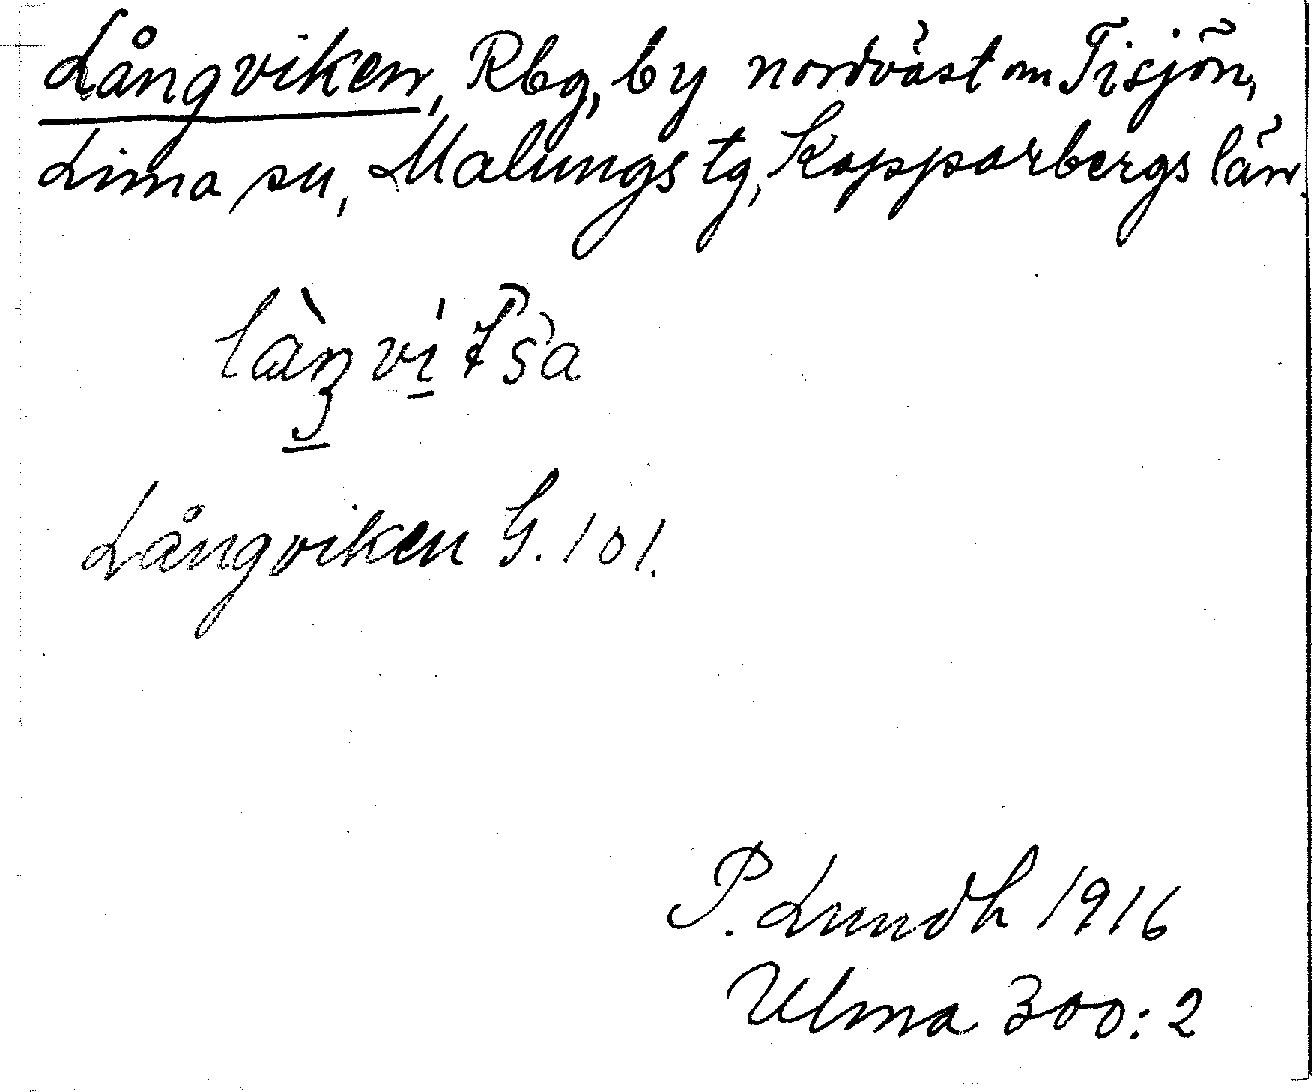 Långviken, Rbg, by nordväst om Tisjön,
Lima sn, Malungs tg, Kopparbergs län.
Långviken G. 101.
P. Lundh 1916
Ulma 300:2